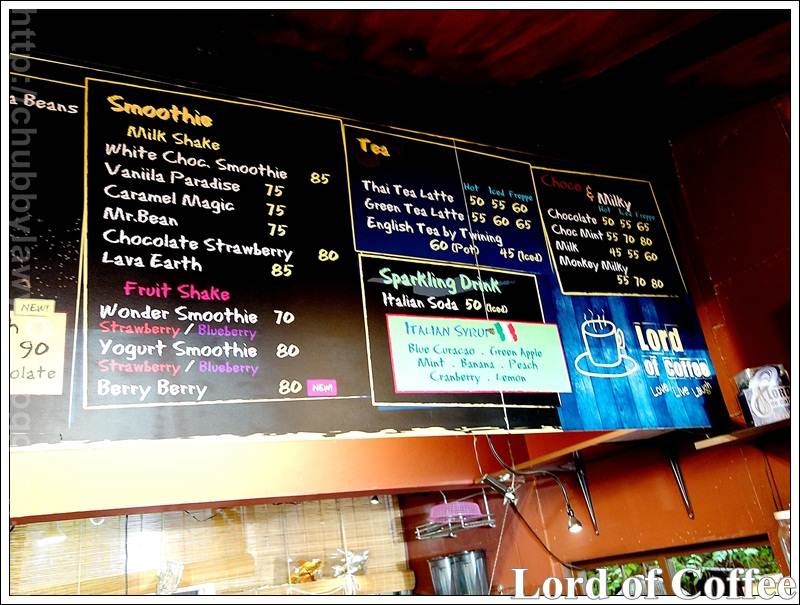 a Beans
NEW!
90
olate
Smoothie
Milk Shake
White Choc. Smoothie 85
Vaniila Paradise 75
Caramel Magic 75
Mr.Bean 75
Chocolate Strawberry 80
Lava Earth 85
Fruit Shake
Wonder Smoothie 70
Strawberry / Blueberry
Yogurt Smoothie 80
Strawberry / Blueberry
Berry Berry 80 NEW!
Tea
Hot Iced Frappe
Thai Tea Latte 50 55 60
Green Tea Latte 55 60 65
English Tea by Twining
60 (Pot) 45 (Iced)
Sparkling Drink
Italian Soda 50 (Iced)
ITALIAN SYRUP
Blue Curacao . Green Apple
Mint . Banana . Peach
Cranberry . Lemon
Choco & Milky
Hot Iced Frappe
Chocolate 50 55 65
Choc Mint 55 70 80
Milk 45 55 60
Monkey Milky
55 70 80
Lord
of Coffee
Love Live Laugh
Lord of Coffee